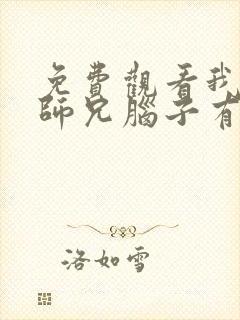 免費觀看我
師兄腦子有
洛如雪